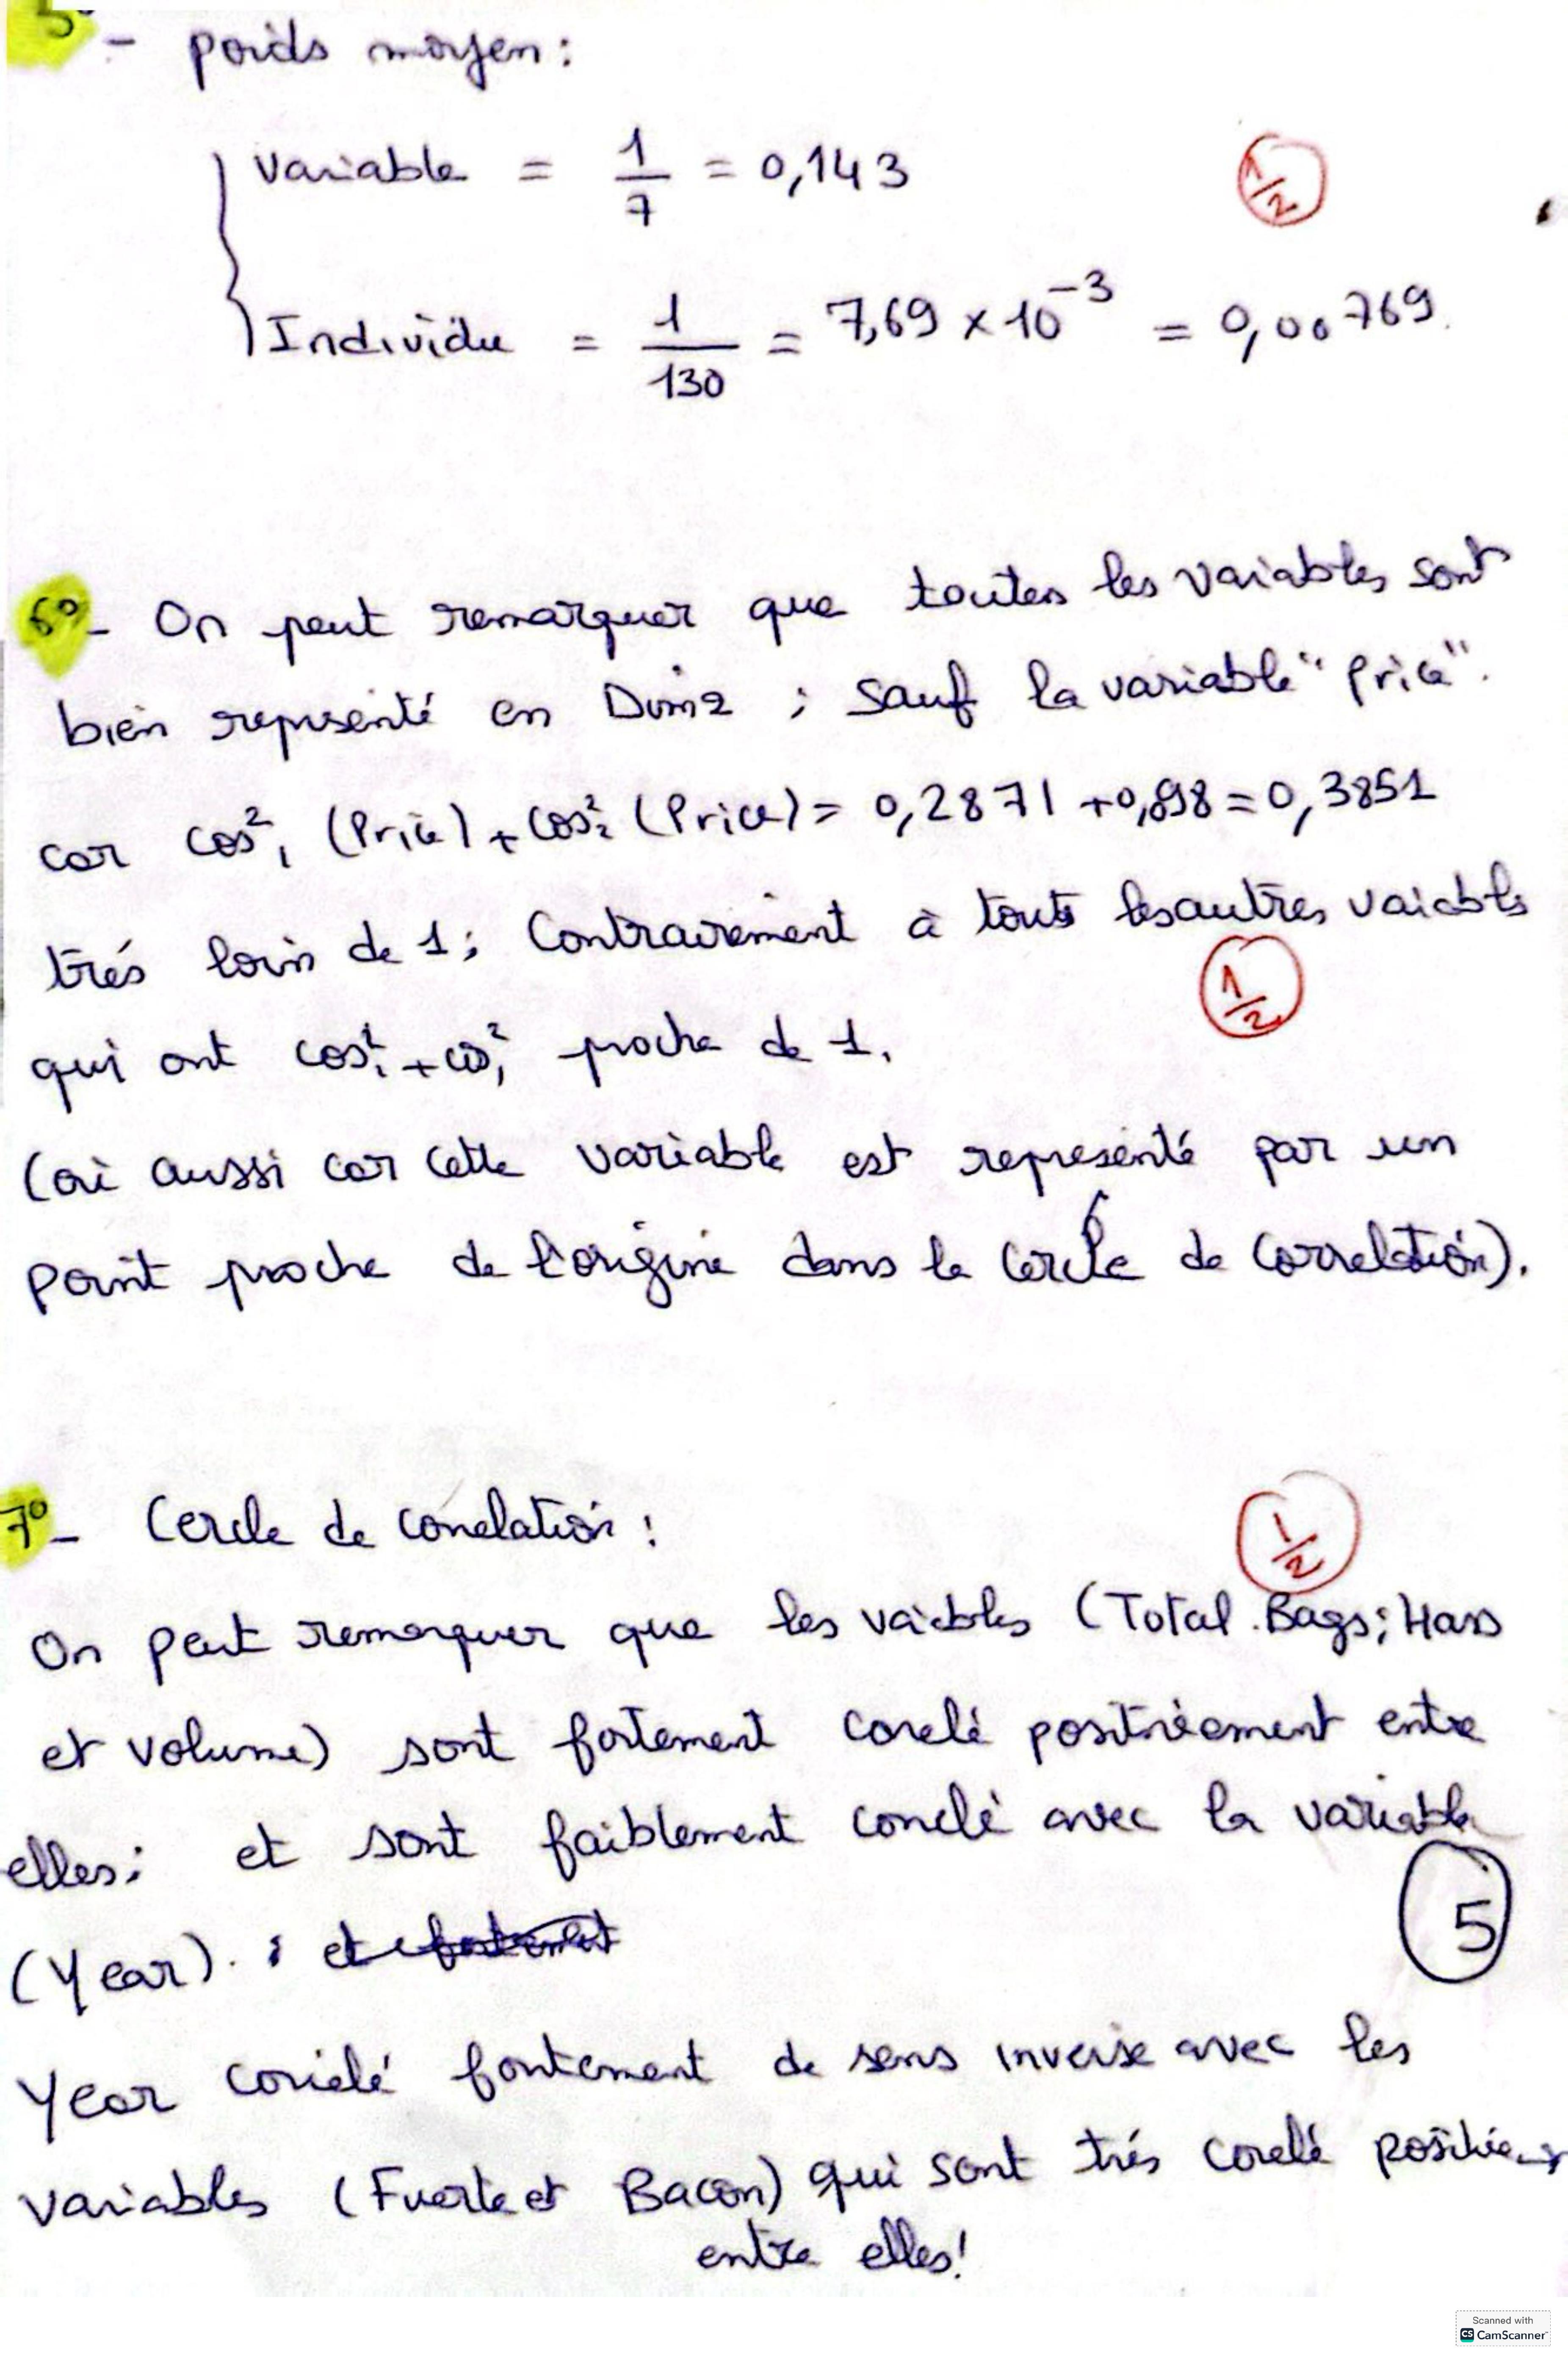 5° - poids moyen :
variable = 1/7 = 0,143
1/2
Individu = 1/130 = 7,69 × 10^-3 = 0,00769.
6° - On peut remarquer que toutes les variables sont
bien representé en Dim2 ; sauf la variable "price".
car cos²1 (Price) + cos²2 (Price) = 0,2871 + 0,098 = 0,3851
trés loin de 1 ; Contrairement à touts les autres vaiables
1/2
qui ont cos²1 + cos²1 proche de 1.
(où aussi car cette variable est representé par un
point proche de l'origine dans le cercle de correlation).
7° - Cercle de correlation :
1/2
On peut remarquer que les vaiables (Total.Bags ; Hass
et volume) sont fortement corelé positivement entre
elles ; et sont faiblement corrélé avec la variable
(Year). ; et fortement
5
Year corrélé fortement de sens inverse avec les
variables (Fuerte et Bacon) qui sont trés corelé
entre elles !
Scanned with
CS CamScanner